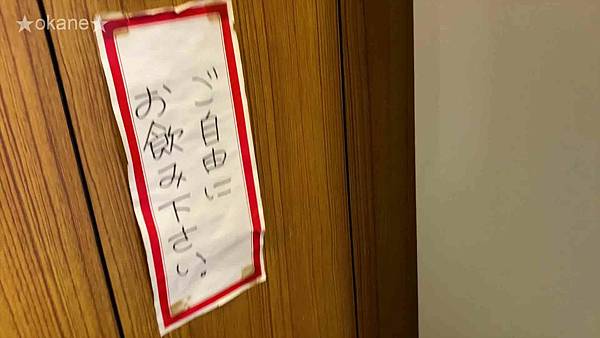 ★okane★
ご自由に
お飲み下さい。